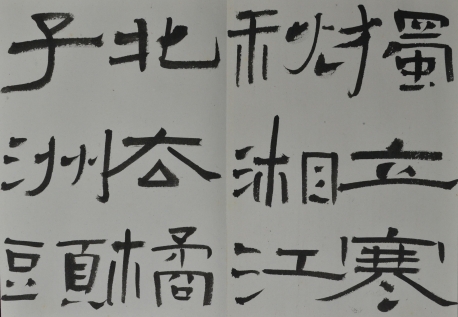 獨立寒
秋湘江
北去橘
子洲頭